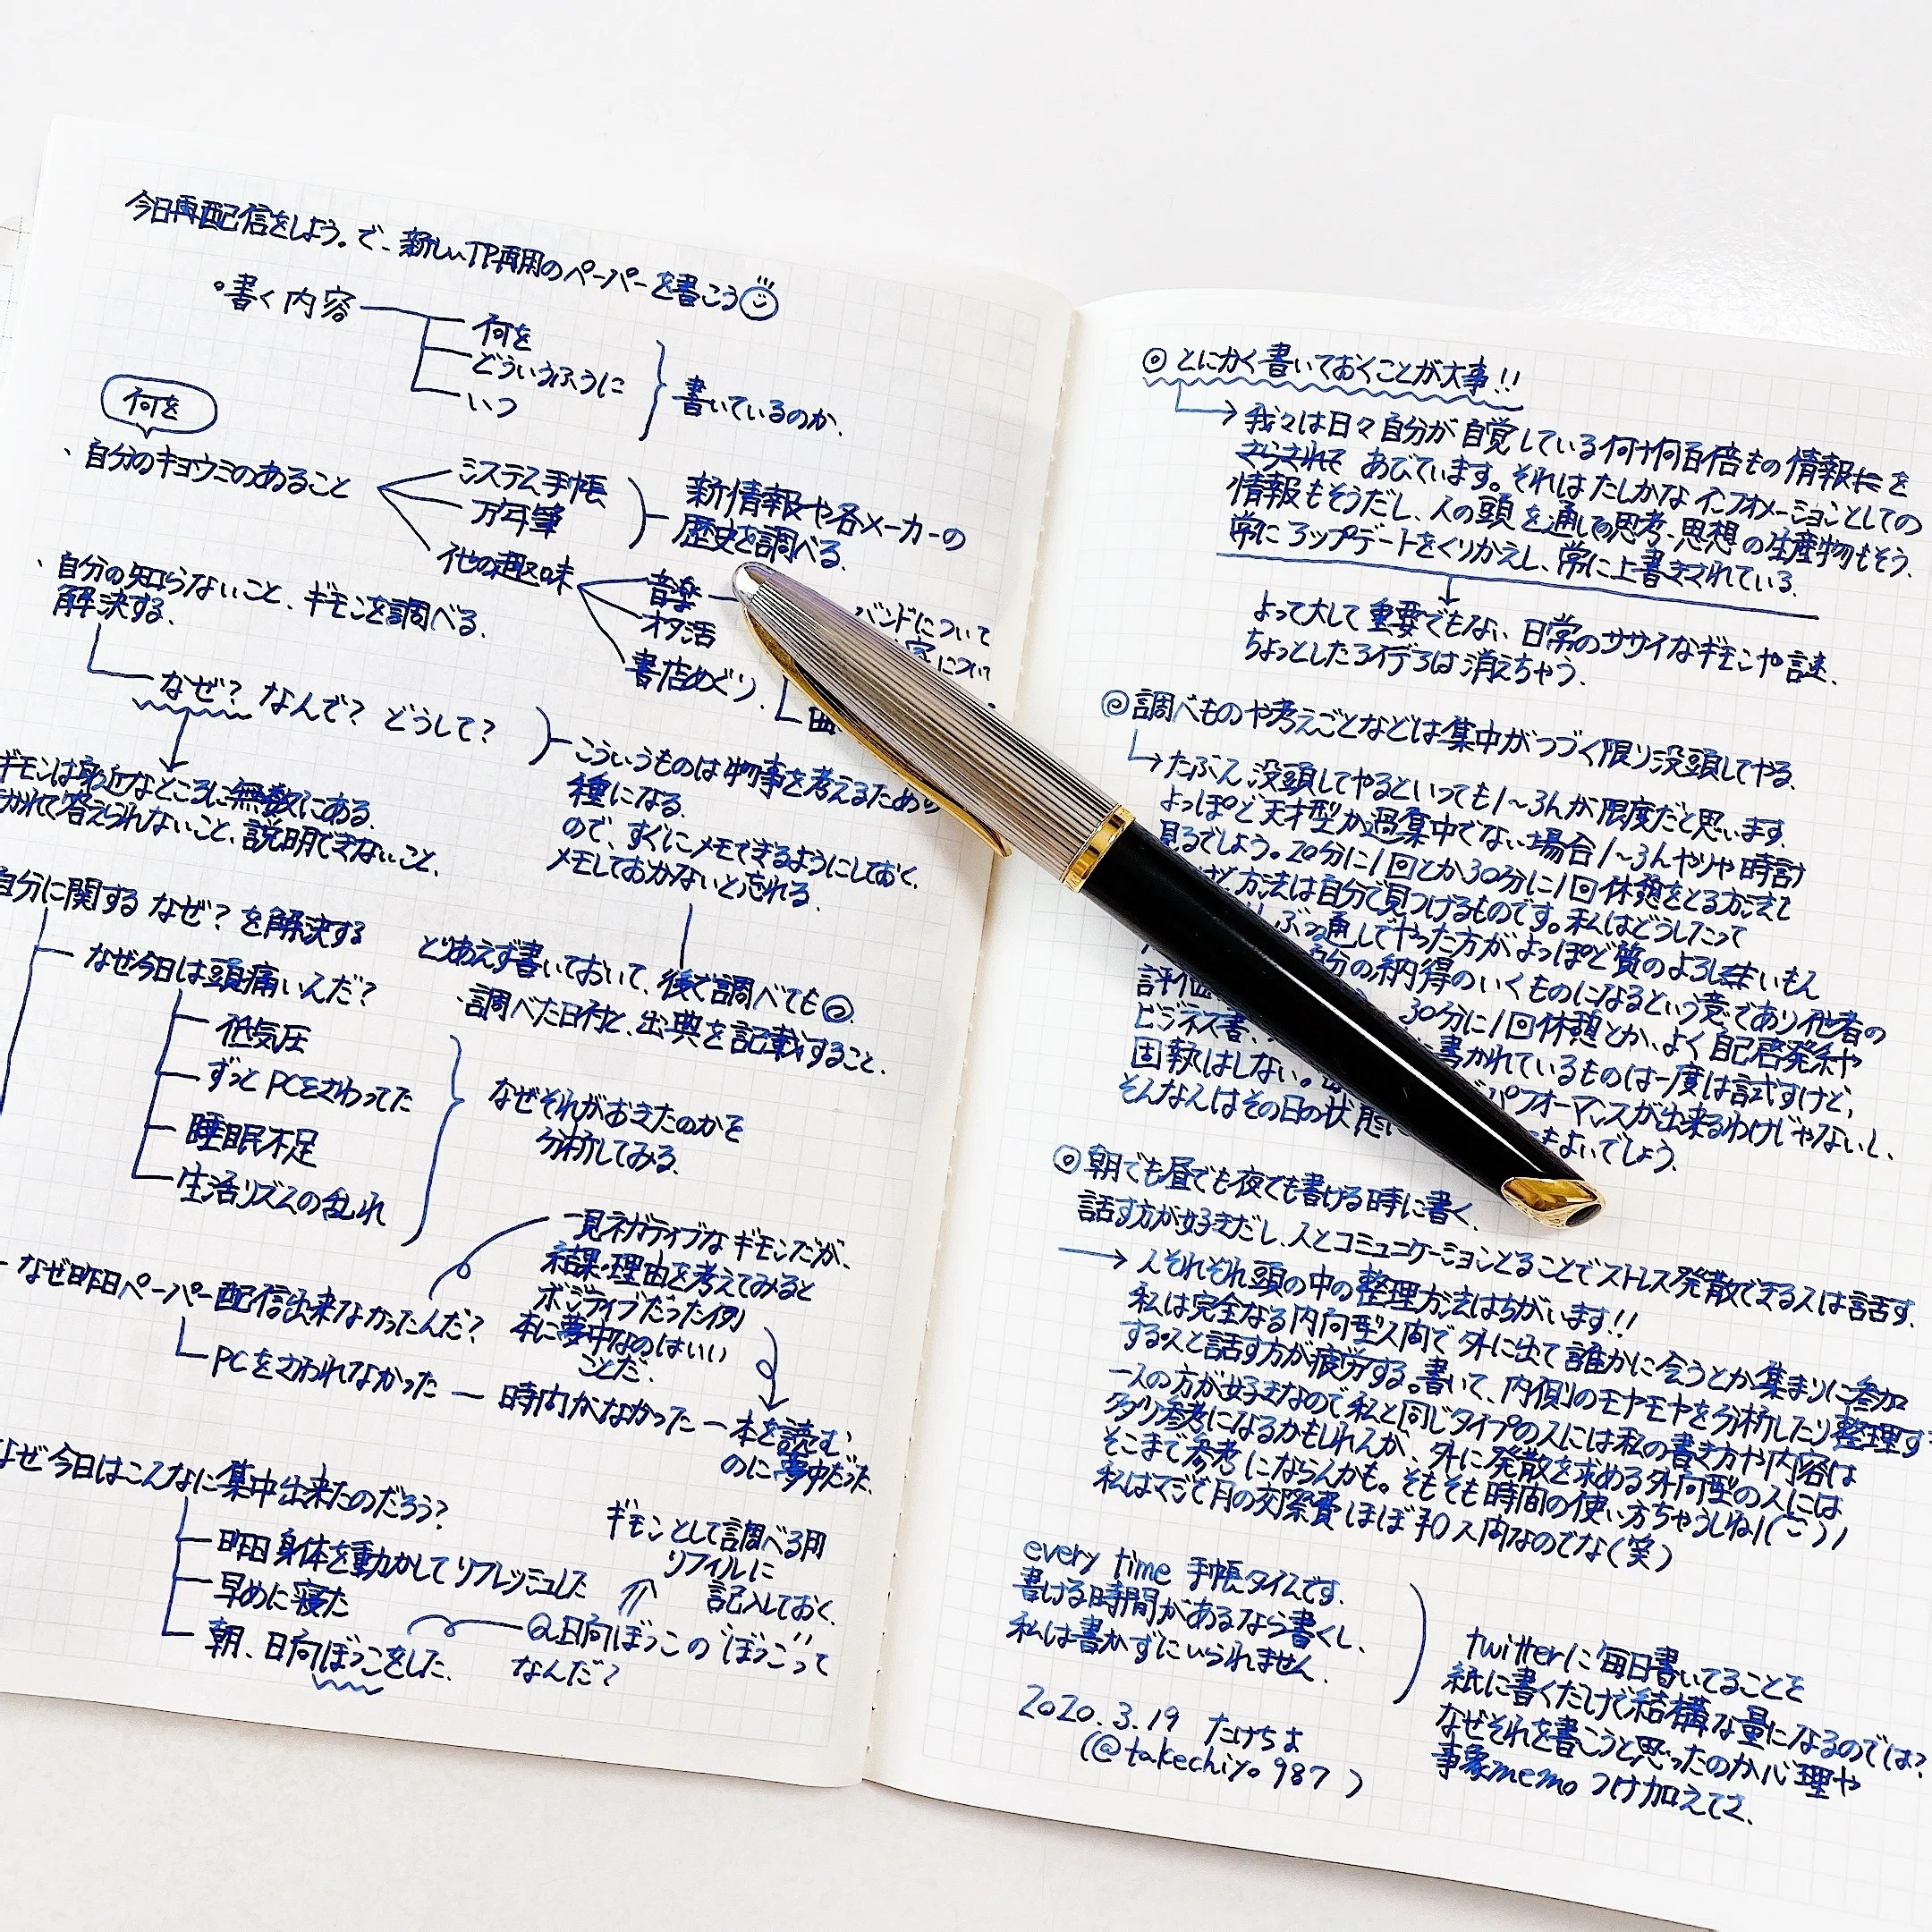 今日再配信をしよう。で、新しいTP再用のペーパーを書こう
・書く内容
何を
どういうふうに
いつ
書いているのか.
何を
、自分のキョウミのあること
システム手帳
万年筆
他の趣味
新情報や各メーカーの
歴史を調べる.
音楽
オタ活
書店めぐり.
バンドについて
について
曲
、自分の知らないこと、ギモンを調べる.
解決する.
なぜ? なんで? どうして?
ギモンは身近なところに無数にある.
かれて答えられないこと、説明できないこと.
こういうものは物事を考えるための
種になる.
ので、すぐにメモできるようにしておく.
メモしておかないと忘れる.
とりあえず書いておいて、後で調べても◎.
・調べた日付と、出典を記載すること.
自分に関する なぜ? を解決する
なぜ今日は頭痛いんだ?
低気圧
ずっとPCをさわってた
睡眠不足
生活リズムの乱れ
なぜそれがおきたのかを
分析してみる.
なぜ昨日ペーパー配信出来なかったんだ?
PCをさわれなかった ー 時間がなかった ー 本を読む
のに夢中だった.
一見ネガティブなギモンだが、
結果・理由を考えてみると
ポジティブだった例
本に夢中なのはいい
ことだ.
なぜ今日はこんなに集中出来たのだろう?
昨日身体を動かしてリフレッシュした
早めに寝た
朝、日向ぼっこをした.
Q.日向ぼっこの"ぼっこ"って
なんだ?
ギモンとして調べる用
リフィルに
記入しておく.
◎ とにかく書いておくことが大事!!
→ 我々は日々自分が自覚している何十何百倍もの情報を
さらされて あびています。それはたしかなインフォメーションとしての
情報もそうだし、人の頭を通しての思考、思想の生産物もそう.
常にアップデートをくりかえし、常に上書きされている.
よって大して重要でもない日常のササイなギモンや謎.
ちょっとしたアイデアは消えちゃう.
◎ 調べものや考えごとなどは集中がつづく限り没頭してやる.
→ たぶん没頭してやるといっても1〜3hが限度だと思います.
よっぽど天才型か過集中でない場合1〜3hやりゃ時計
見るでしょう。20分に1回とか30分に1回休憩をとる方法で
方法は自分で見つけるものです。私はどうしたって
ぶっ通しでやった方がよっぽど質のよろしいもん
自分の納得のいくものになるという意であり他者の
評価
30分に1回休憩とか、よく自己啓発系や
ビジネス書、
書かれているものは一度は試すけど、
固執はしない。
パフォーマンスが出来るわけじゃないし、
そんなんはその日の状態に
もよいでしょう.
◎ 朝でも昼でも夜でも書ける時に書く.
話す方が好きだし、人とコミュニケーションとることでストレス発散できる人は話す.
→ 人それぞれ頭の中の整理方法はちがいます!!
私は完全なる内向型人間で外に出て誰かに会うとか集まりに参加
する人と話す方が疲労する。書いて、内側のモヤモヤを分析したり整理す
一人の方が好きなので私と同じタイプの人には私の書き方や内容は
多少参考になるかもしれんが、外に発散を求める外向型の人には
そこまで参考にならんかも。そもそも時間の使い方ちゃうしね!
私はマジで月の交際費ほぼ¥0人間なのでな(笑)
every time 手帳タイムです.
書ける時間があるなら書くし、
私は書かずにいられません.
twitterに毎日書いてることを
紙に書くだけで結構な量になるのでは?
なぜそれを書こうと思ったのか心理や
事象memo つけ加えてさ.
2020.3.19 たけちよ
(@takechiyo987)